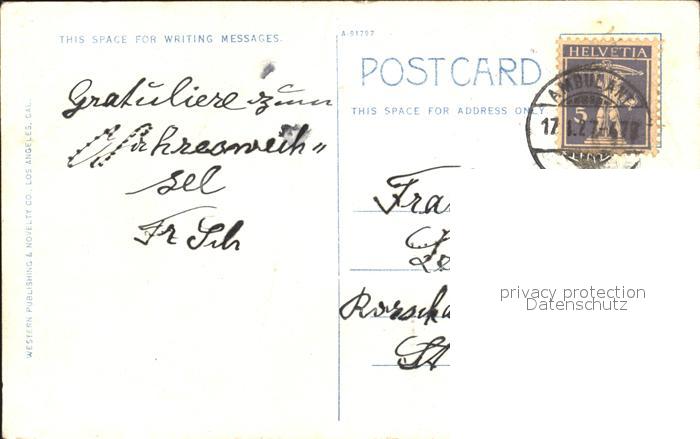 THIS SPACE FOR WRITING MESSAGES.
A-91797
POST CARD
THIS SPACE FOR ADDRESS ONLY
HELVETIA
5
AMBULANT
17
Gratuliere zum
Wahresweih"
sel
Fr Sch
Fra
Rorscha
St
WESTERN PUBLISHING & NOVELTY CO., LOS ANGELES, CAL.
privacy protection
Datenschutz